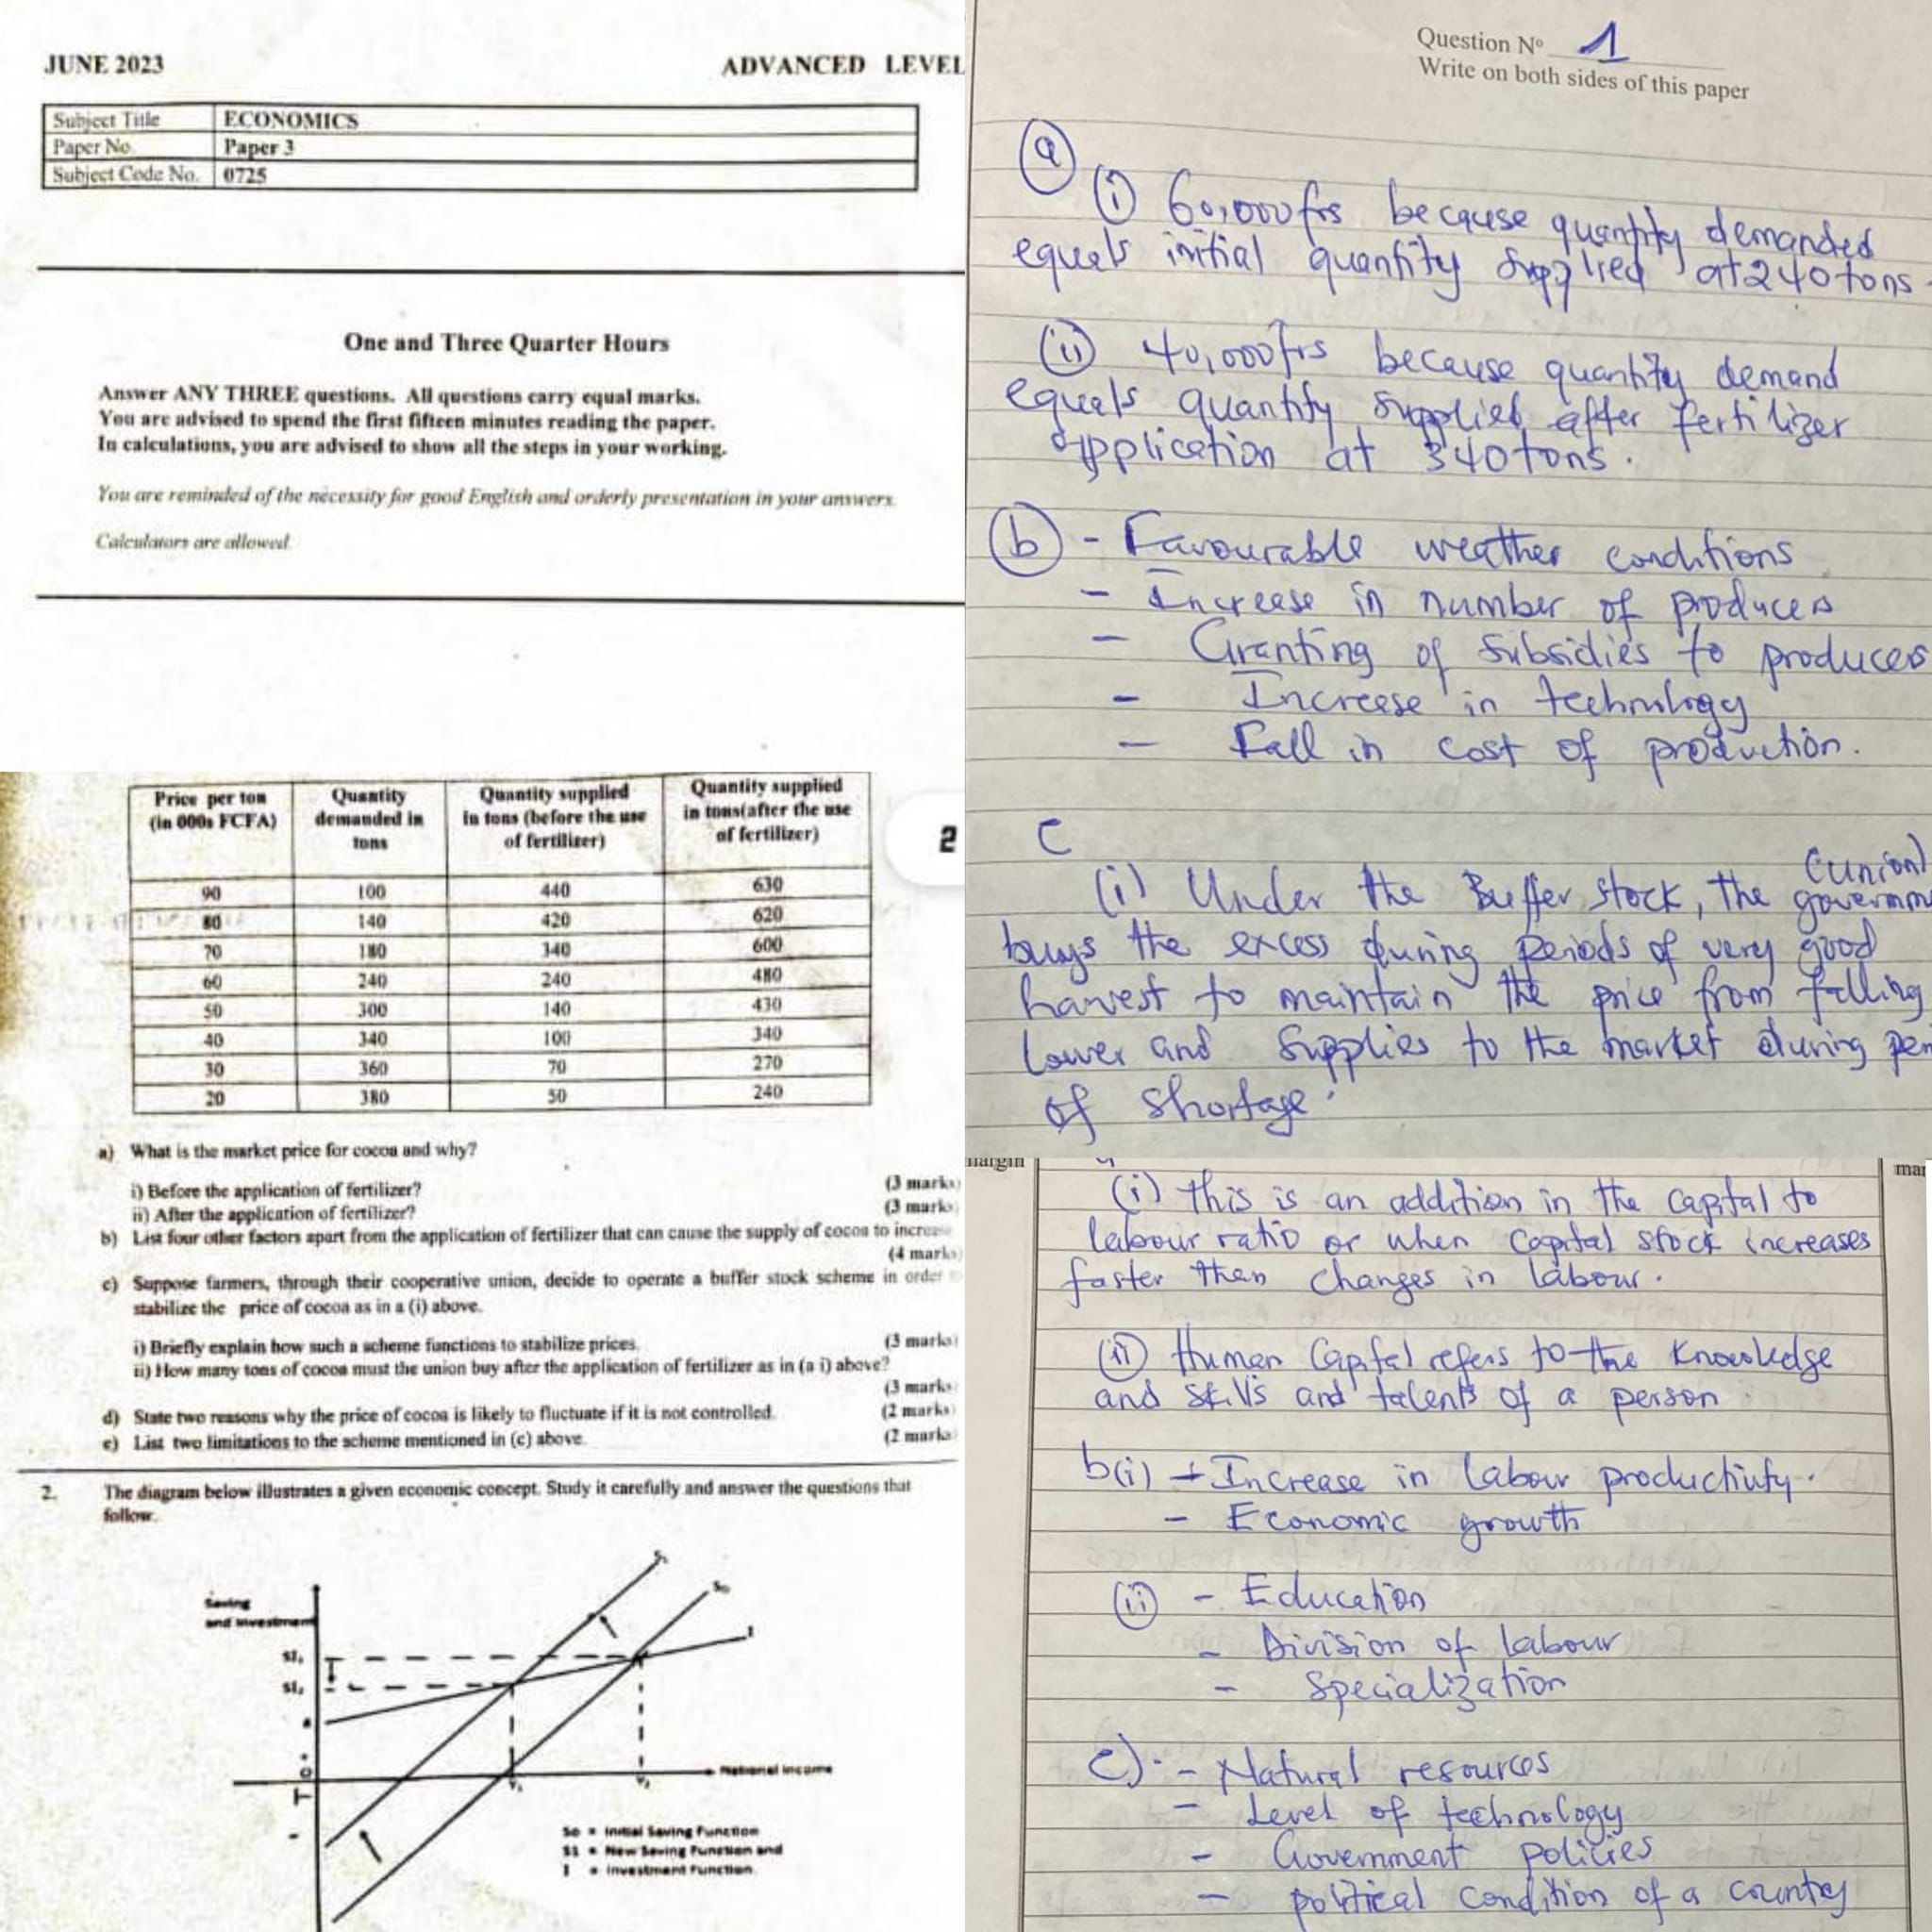 JUNE 2023
ADVANCED LEVEL
Subject Title ECONOMICS
Paper No. Paper 3
Subject Code No. 0725
One and Three Quarter Hours
Answer ANY THREE questions. All questions carry equal marks.
You are advised to spend the first fifteen minutes reading the paper.
In calculations, you are advised to show all the steps in your working.
You are reminded of the necessity for good English and orderly presentation in your answers.
Calculators are allowed.
Price per ton (in 000s FCFA) Quantity demanded in tons Quantity supplied in tons (before the use of fertilizer) Quantity supplied in tons(after the use of fertilizer)
90 100 440 630
80 140 420 620
70 180 340 600
60 240 240 480
50 300 140 430
40 340 100 340
30 360 70 270
20 380 50 240
2
a) What is the market price for cocoa and why?
i) Before the application of fertilizer? (3 marks)
ii) After the application of fertilizer? (3 marks)
b) List four other factors apart from the application of fertilizer that can cause the supply of cocoa to increase
(4 marks)
c) Suppose farmers, through their cooperative union, decide to operate a buffer stock scheme in order
stabilize the price of cocoa as in a (i) above.
i) Briefly explain how such a scheme functions to stabilize prices. (3 marks)
ii) How many tons of cocoa must the union buy after the application of fertilizer as in (a i) above?
(3 marks)
d) State two reasons why the price of cocoa is likely to fluctuate if it is not controlled. (2 marks)
e) List two limitations to the scheme mentioned in (c) above. (2 marks)
2. The diagram below illustrates a given economic concept. Study it carefully and answer the questions that
follow.
Saving
and investment
S₀
I
National income
So = Initial Saving Function
S1 = New Saving Function and
I = Investment Function
Question Nº 1
Write on both sides of this paper
a
(i) 60,000frs because quantity demanded
equals initial quantity supplied at 240tons.
(ii) 40,000frs because quantity demand
equals quantity supplied after fertilizer
application at 340tons.
b - Favourable weather conditions
- Increase in number of producers
- Granting of subsidies to producers
- Increase in technology
- Fall in cost of production.
C
(union)
(i) Under the Buffer stock, the governm
buys the excess during periods of very good
harvest to maintain the price from falling
lower and supplies to the market during per
of shortage.
margin
mar
(i) This is an addition in the capital to
labour ratio or when capital stock increases
faster than changes in labour.
(ii) Human Capital refers to the knowledge
and skills and talents of a person
b(i) - Increase in labour productivity.
- Economic growth
(ii) - Education
- Division of labour
- Specialization
c) - Natural resources
- Level of technology
- Government policies
- political condition of a country